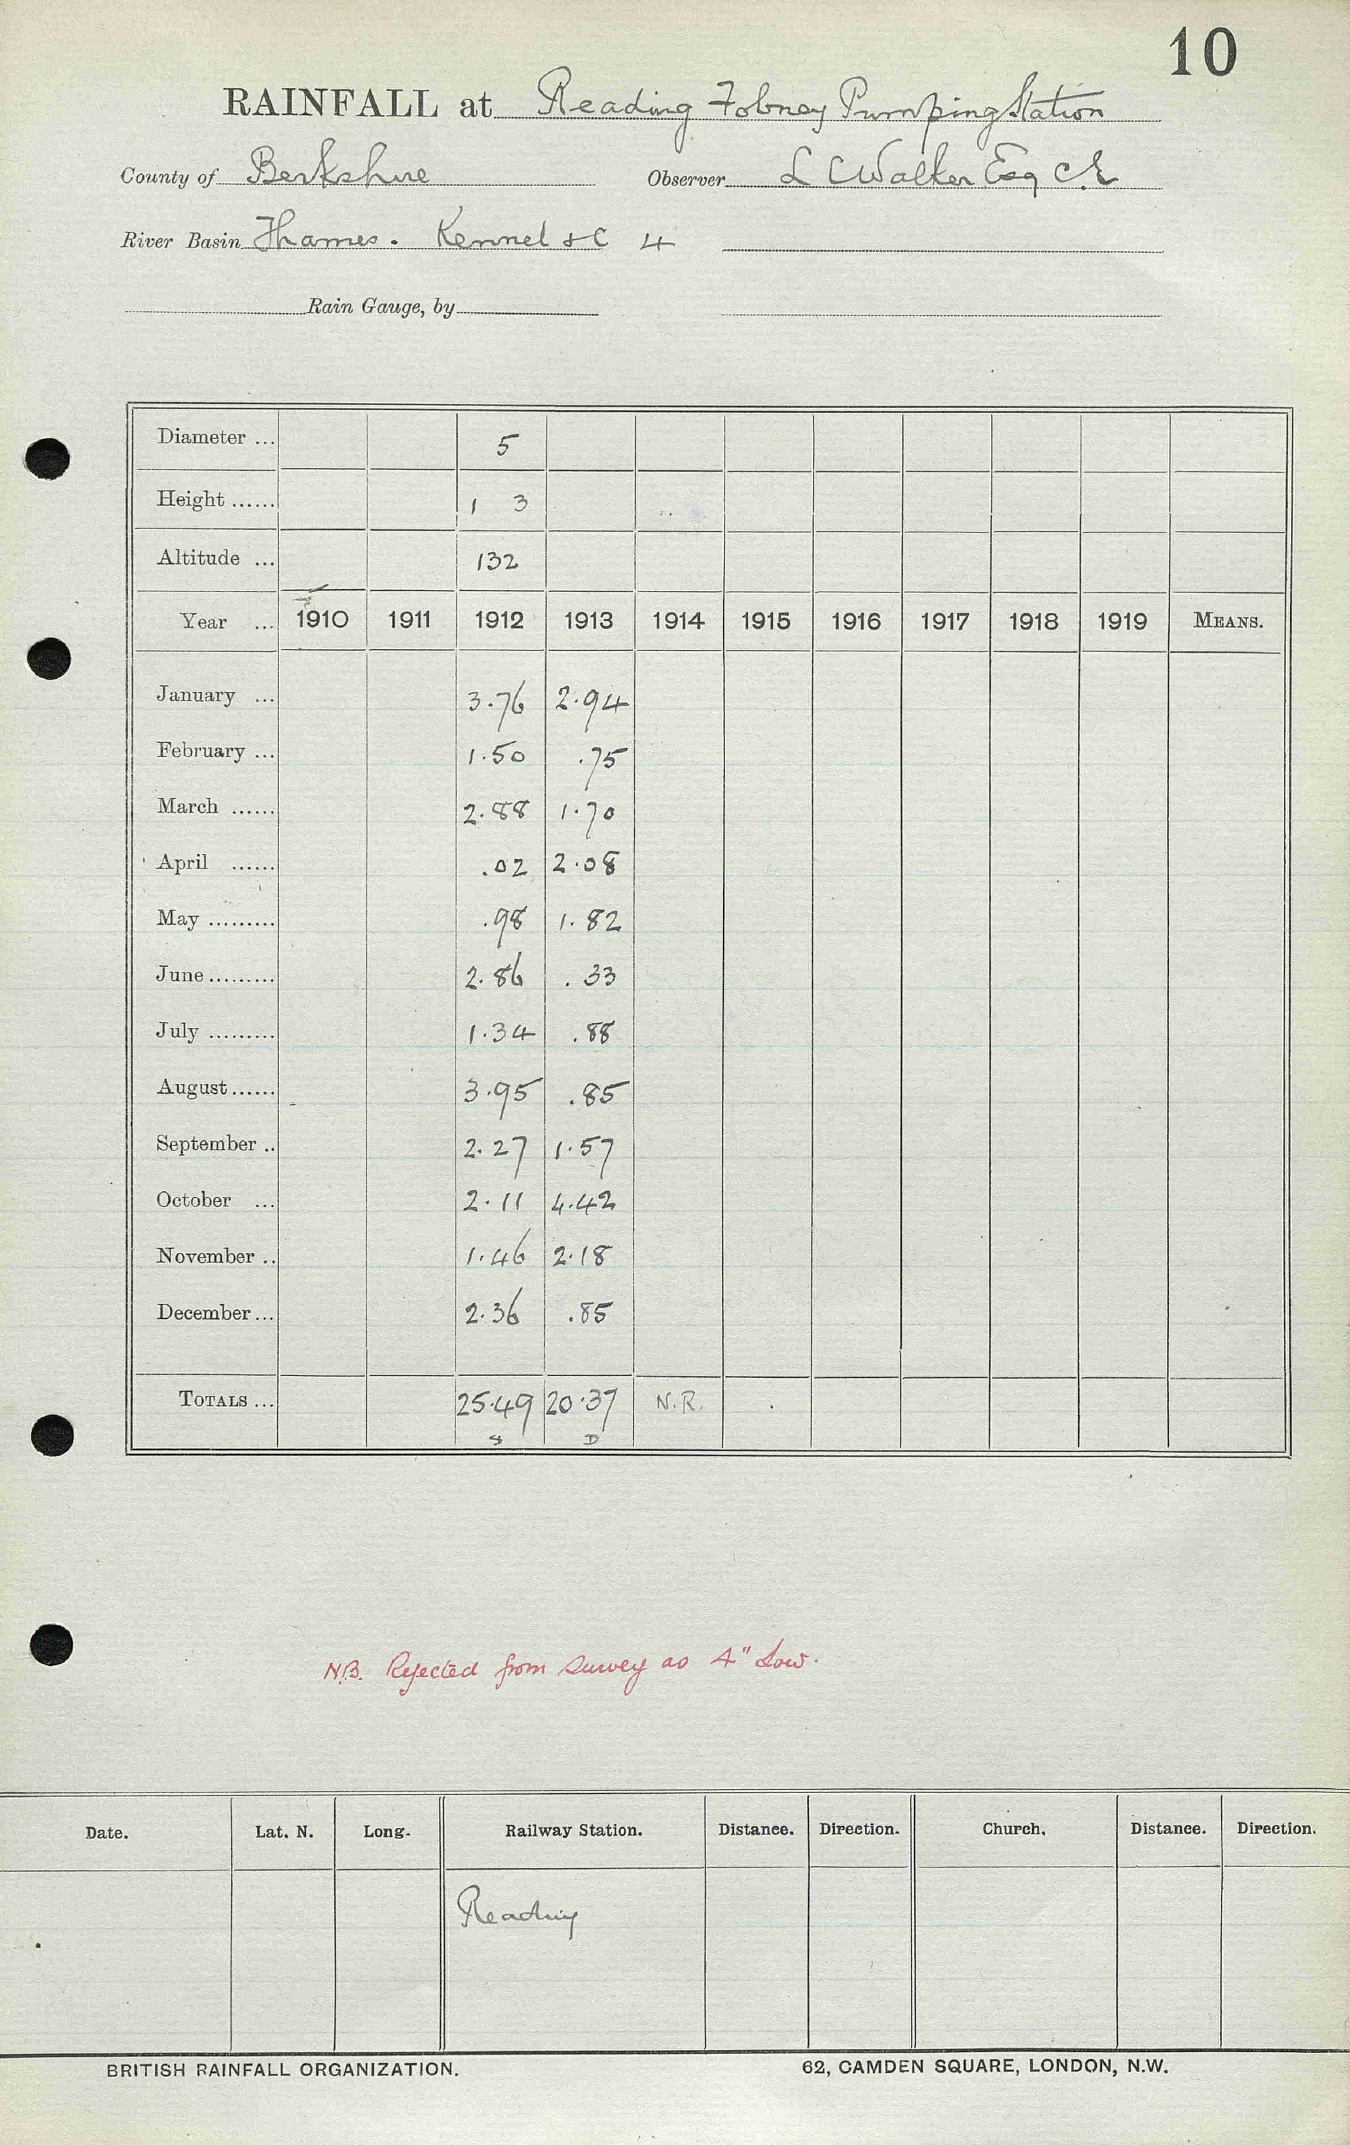 10
RAINFALL at Reading Fobney Pumping Station
County of Berkshire Observer L C Walker Esq C.E
River Basin Thames. Kennel & C 4
Rain Gauge, by
Diameter ... 5
Height ...... 1 3
Altitude ... 132
Year ... 1910 1911 1912 1913 1914 1915 1916 1917 1918 1919 MEANS.
January ... 3.76 2.94
February ... 1.50 .75
March ...... 2.88 1.70
April ...... .02 2.08
May ......... .98 1.82
June ......... 2.86 .33
July ......... 1.34 .88
August ...... 3.95 .85
September .. 2.27 1.57
October ... 2.11 4.42
November .. 1.46 2.18
December ... 2.36 .85
TOTALS ... 25.49 20.37 N.R.
D
N.B. Rejected from survey as 4" Low.
Date. Lat. N. Long. Railway Station. Distance. Direction. Church. Distance. Direction.
Reading
BRITISH RAINFALL ORGANIZATION. 62, CAMDEN SQUARE, LONDON, N.W.